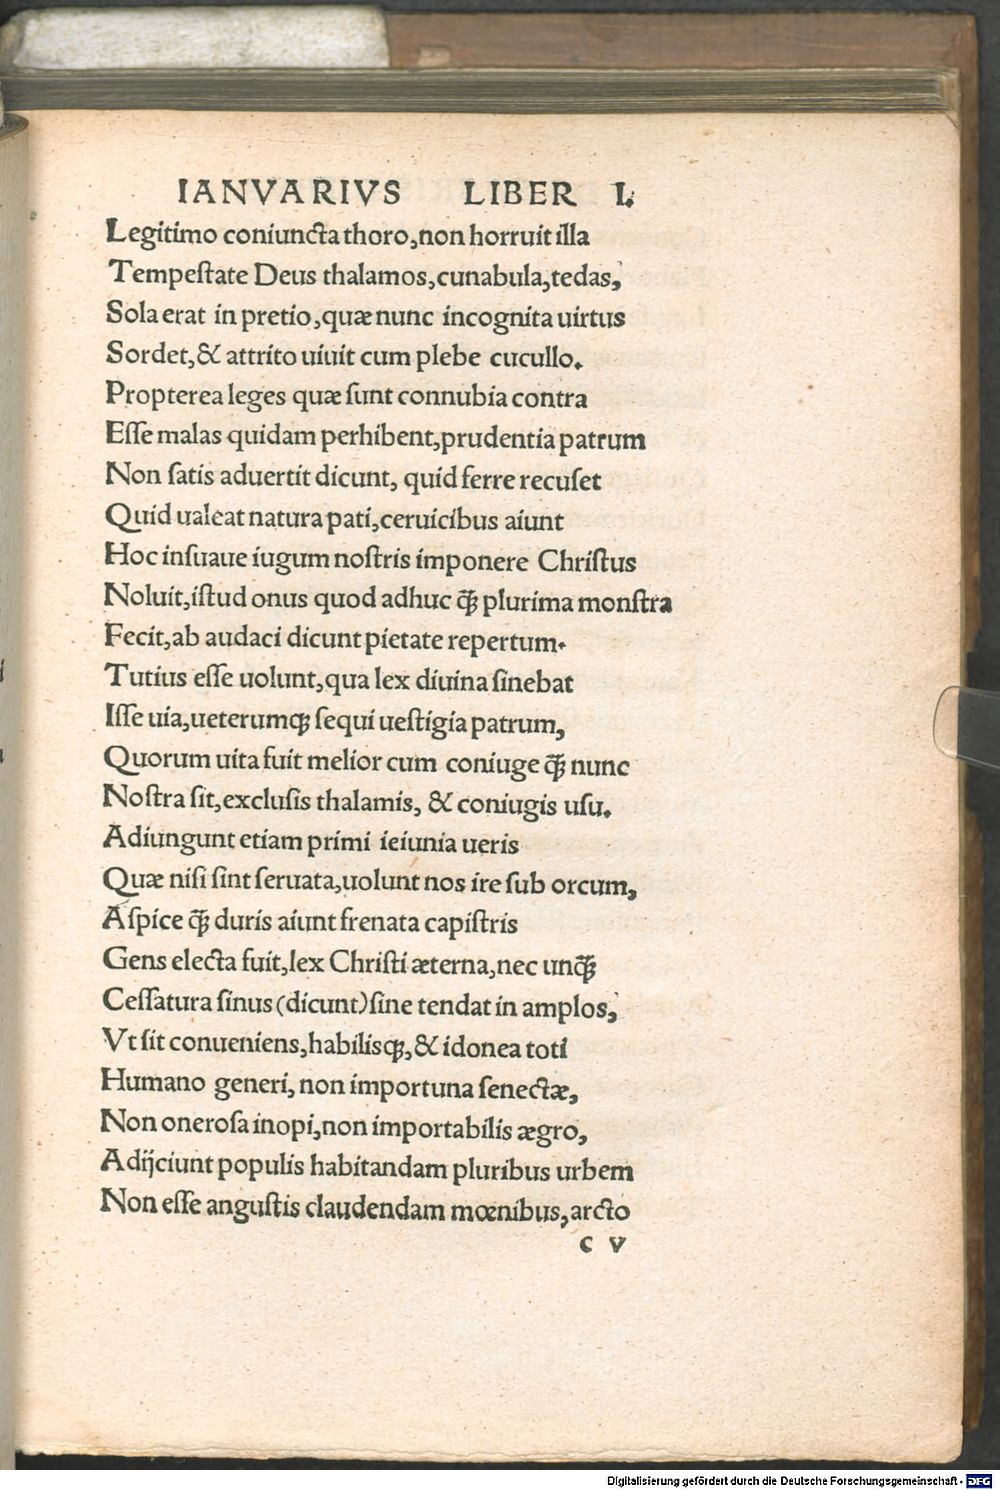 IANVARIVS LIBER I.
Legitimo coniuncta thoro,non horruit illa
Tempeſtate Deus thalamos,cunabula,tedas,
Sola erat in pretio,quæ nunc incognita uirtus
Sordet,& attrito uiuit cum plebe cucullo.
Propterea leges quæ ſunt connubia contra
Eſſe malas quidam perhibent,prudentia patrum
Non ſatis aduertit dicunt, quid ferre recuſet
Quid ualeat natura pati,ceruicibus aiunt
Hoc inſuaue iugum noſtris imponere Chriſtus
Noluit,iſtud onus quod adhuc q̃ꝫ plurima monſtra
Fecit,ab audaci dicunt pietate repertum.
Tutius eſſe uolunt,qua lex diuina ſinebat
Iſſe uia,ueterumqꝫ ſequi ueſtigia patrum,
Quorum uita fuit melior cum coniuge q̃ꝫ nunc
Noſtra ſit,excluſis thalamis, & coniugis uſu.
Adiungunt etiam primi ieiunia ueris
Quæ niſi ſint ſeruata,uolunt nos ire ſub orcum,
Aſpice q̃ꝫ duris aiunt frenata capiſtris
Gens electa fuit,lex Chriſti æterna,nec unq̃ꝫ
Ceſſatura ſinus(dicunt)ſine tendat in amplos,
Vt ſit conueniens,habilisqꝫ,& idonea toti
Humano generi, non importuna ſenectæ,
Non oneroſa inopi,non importabilis ægro,
Adijciunt populis habitandam pluribus urbem
Non eſſe anguſtis claudendam mœnibus,arcto
C V
Digitalisierung gefördert durch die Deutsche Forschungsgemeinschaft - DFG